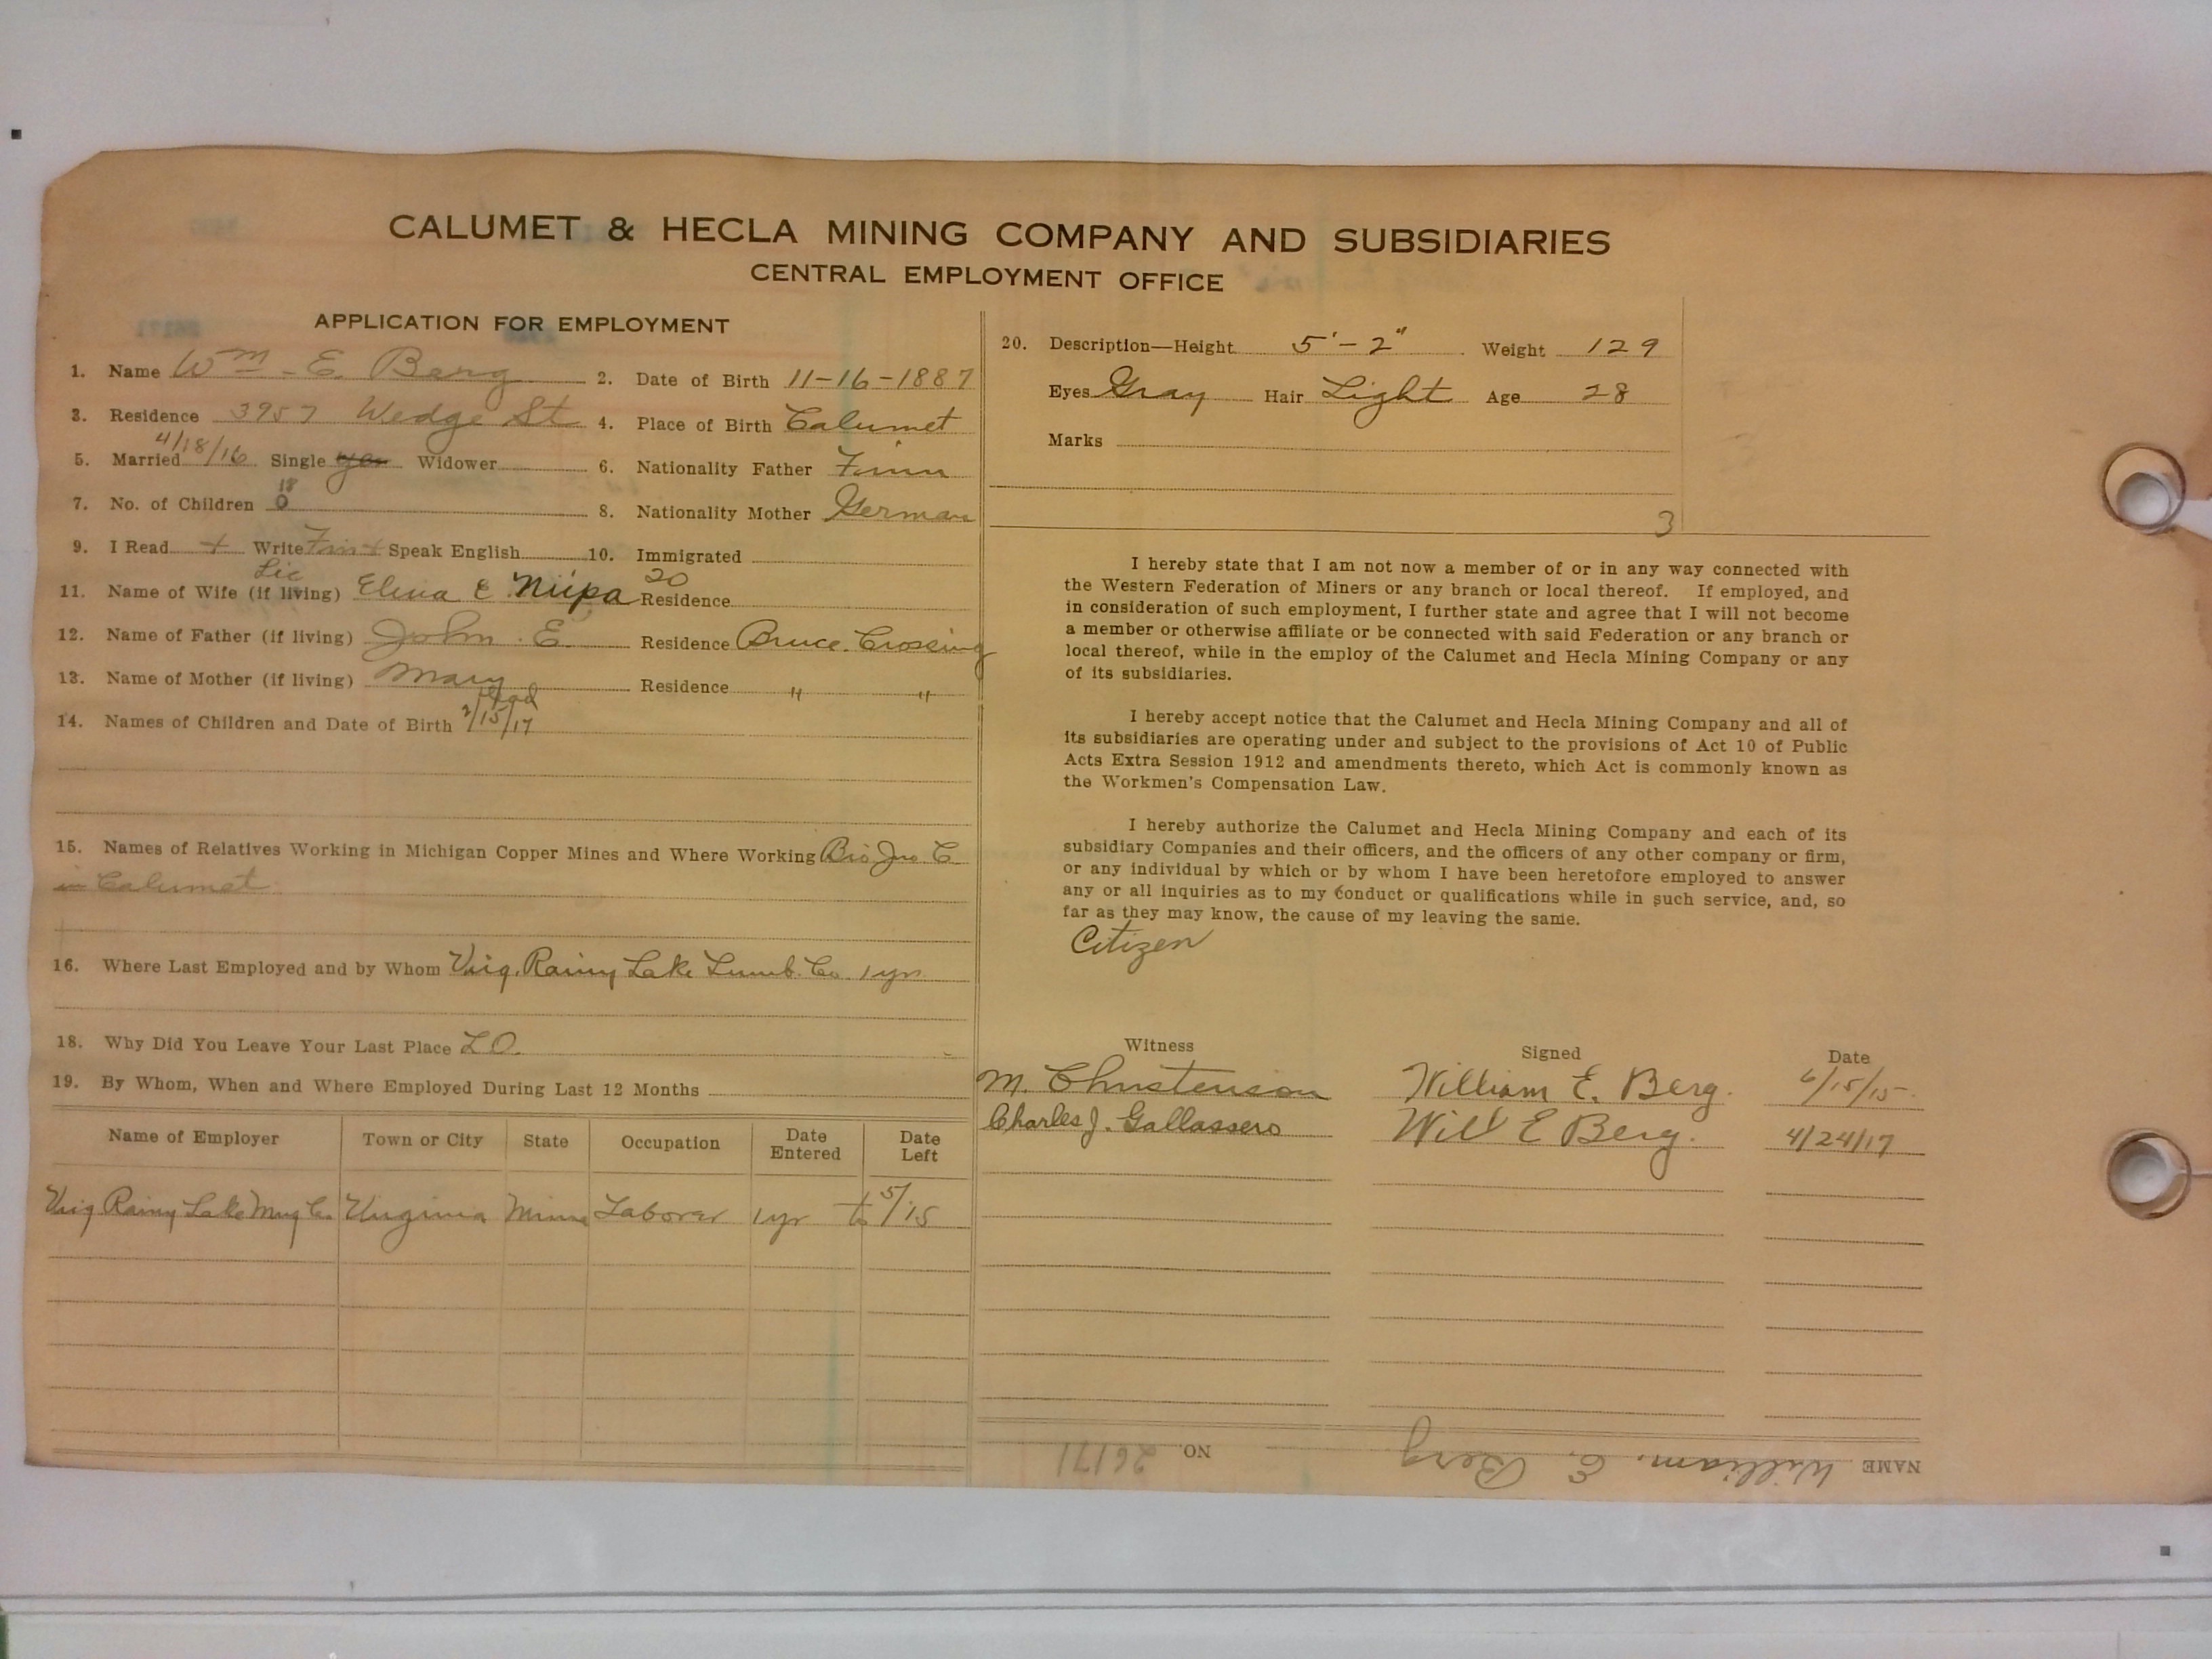 CALUMET & HECLA MINING COMPANY AND SUBSIDIARIES
CENTRAL EMPLOYMENT OFFICE
APPLICATION FOR EMPLOYMENT
1. Name Wm - E. Berg 2. Date of Birth 11-16-1887
3. Residence 3957 Wedge St 4. Place of Birth Calumet
5. Married 4/18/16 Single yes Widower 6. Nationality Father Finn
18
7. No. of Children 0 8. Nationality Mother German
9. I Read + Write Fin + Speak English 10. Immigrated
Lic 20
11. Name of Wife (if living) Elina E Niipa Residence
12. Name of Father (if living) John E. Residence Bruce Crossing
13. Name of Mother (if living) Mary Residence " "
dead
14. Names of Children and Date of Birth 2/15/17
15. Names of Relatives Working in Michigan Copper Mines and Where Working Bro Jno. C
in Calumet
16. Where Last Employed and by Whom Virg. Rainy Lake Lumb. Co. 1 yr.
18. Why Did You Leave Your Last Place L O.
19. By Whom, When and Where Employed During Last 12 Months
Name of Employer Town or City State Occupation Date Entered Date Left
Virg Rainy Lake Mng Co. Virginia Minn Laborer 1 yr to 5/15
20. Description—Height 5'-2" Weight 129
Eyes Gray Hair Light Age 28
Marks
3
I hereby state that I am not now a member of or in any way connected with
the Western Federation of Miners or any branch or local thereof. If employed, and
in consideration of such employment, I further state and agree that I will not become
a member or otherwise affiliate or be connected with said Federation or any branch or
local thereof, while in the employ of the Calumet and Hecla Mining Company or any
of its subsidiaries.
I hereby accept notice that the Calumet and Hecla Mining Company and all of
its subsidiaries are operating under and subject to the provisions of Act 10 of Public
Acts Extra Session 1912 and amendments thereto, which Act is commonly known as
the Workmen's Compensation Law.
I hereby authorize the Calumet and Hecla Mining Company and each of its
subsidiary Companies and their officers, and the officers of any other company or firm,
or any individual by which or by whom I have been heretofore employed to answer
any or all inquiries as to my conduct or qualifications while in such service, and, so
far as they may know, the cause of my leaving the same.
Citizen
Witness Signed Date
M. Christenson William E. Berg. 6/15/15
Charles J. Gallassero Will E Berg. 4/24/17
NAME William. E. Berg NO. 26171